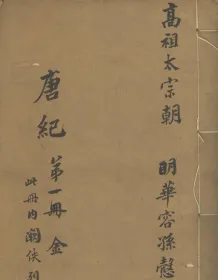 高祖太宗朝 明華容孫慤
唐紀 第一冊 金
此冊内闕佚列